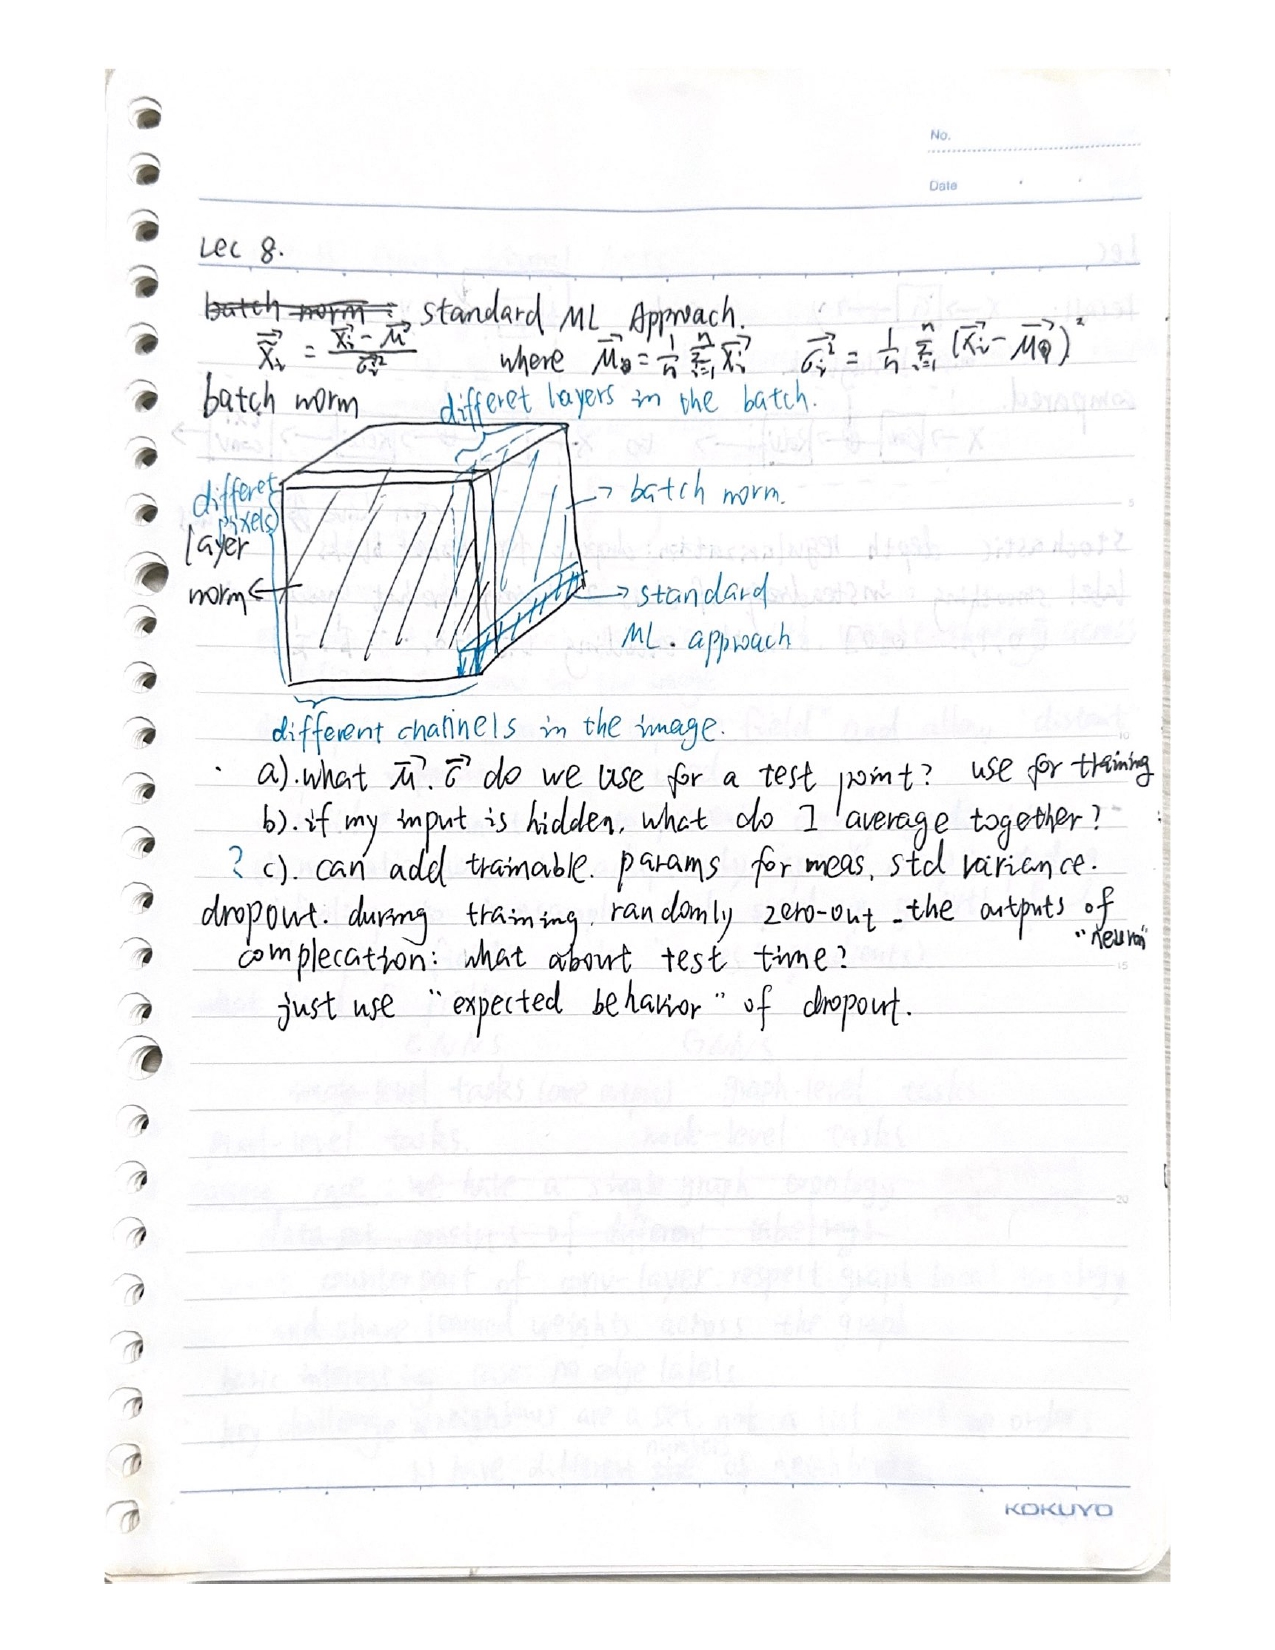 No.
Date
Lec 8.
batch norm: standard ML Approach.
x̃ᵢ = (xᵢ - μ) / σᵢ² where μ = 1/n Σᵢ₌₁ⁿ xᵢ σᵢ² = 1/n Σᵢ₌₁ⁿ (xᵢ - μ)²
batch norm differet layers in the batch.
differet
pixels
→ batch norm.
layer
norm ←
→ standard
ML. approach
different channels in the image.
· a). what μ, σ do we use for a test point? use for training
b). if my input is hidden, what do I average together?
? c). can add trainable. params for meas, std variance.
dropout. during training, randomly zero-out the outputs of
"neuron"
complecation: what about test time?
just use "expected behavior" of dropout.
5
10
15
20
KOKUYO